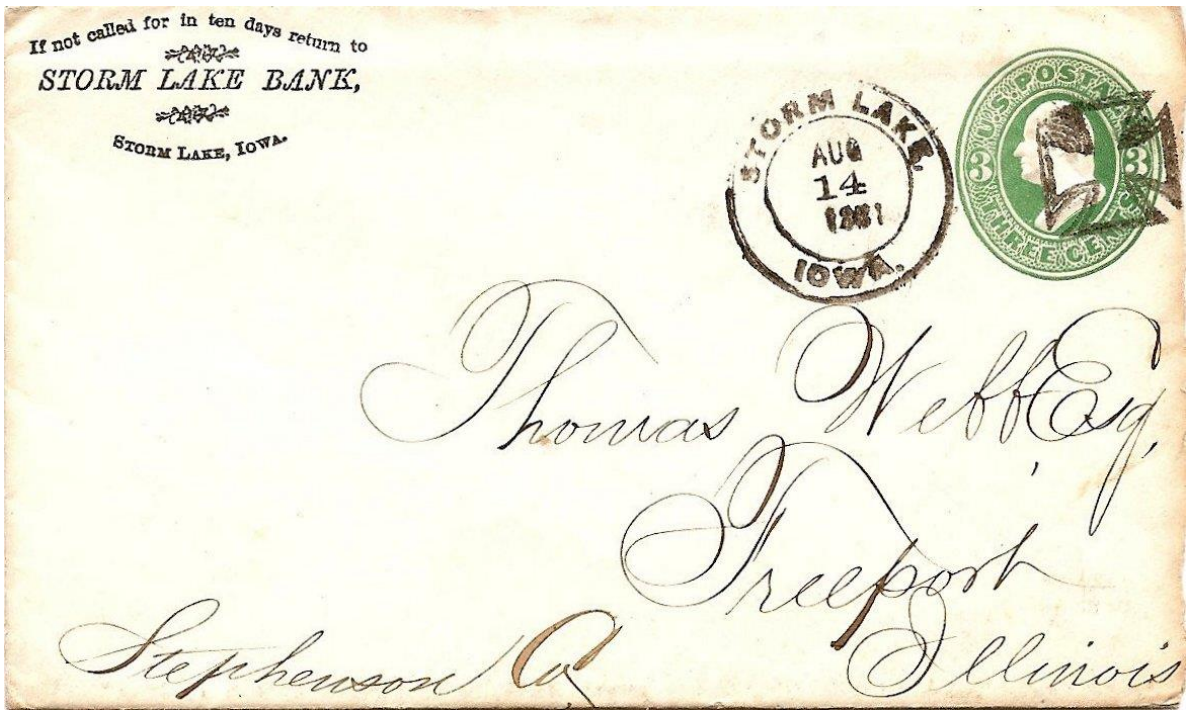 If not called for in ten days return to
STORM LAKE BANK,
STORM LAKE, IOWA.
STORM LAKE,
AUG
14
1881
IOWA.
U.S. POSTA
3 3
THREE CENTS
Thomas Webb Esq,
Freeport
Illinois
Stephenson Co